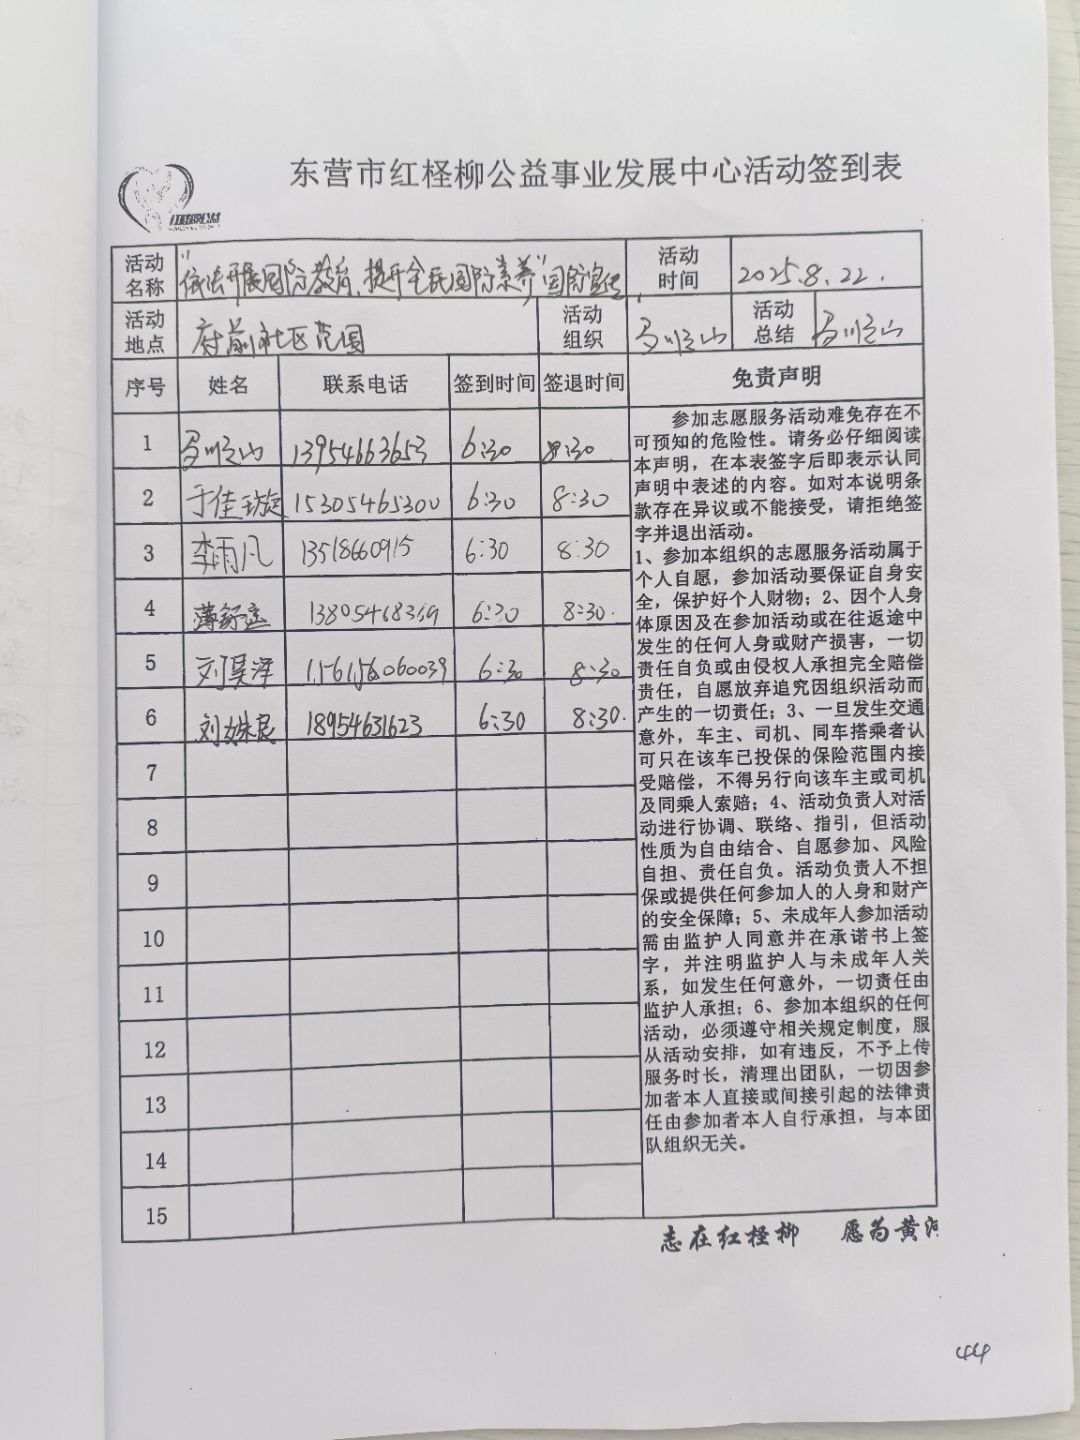 东营市红柽柳公益事业发展中心活动签到表
活动名称 "依法开展国防教育、提升全民国防素养"国防宣传 活动时间 2025.8.22.
活动地点 府前社区范围 活动组织 活动总结
序号 姓名 联系电话 签到时间 签退时间 免责声明
1 13954663653 6:30 8:30
2 于佳璇 15305465300 6:30 8:30
3 李雨凡 13518660915 6:30 8:30
4 薄舒 13805468369 6:30 8:30
5 刘昊泽 156156060039 6:30 8:30
6 刘姝良 18954631623 6:30 8:30.
7
8
9
10
11
12
13
14
15
参加志愿服务活动难免存在不
可预知的危险性。请务必仔细阅读
本声明，在本表签字后即表示认同
声明中表述的内容。如对本说明条
款存在异议或不能接受，请拒绝签
字并退出活动。
1、参加本组织的志愿服务活动属于
个人自愿，参加活动要保证自身安
全，保护好个人财物；2、因个人身
体原因及在参加活动或在往返途中
发生的任何人身或财产损害，一切
责任自负或由侵权人承担完全赔偿
责任，自愿放弃追究因组织活动而
产生的一切责任；3、一旦发生交通
意外，车主、司机、同车搭乘者认
可只在该车已投保的保险范围内接
受赔偿，不得另行向该车主或司机
及同乘人索赔；4、活动负责人对活
动进行协调、联络、指引，但活动
性质为自由结合、自愿参加、风险
自担、责任自负。活动负责人不担
保或提供任何参加人的人身和财产
的安全保障；5、未成年人参加活动
需由监护人同意并在承诺书上签
字，并注明监护人与未成年人关
系，如发生任何意外，一切责任由
监护人承担；6、参加本组织的任何
活动，必须遵守相关规定制度，服
从活动安排，如有违反，不予上传
服务时长，清理出团队，一切因参
加者本人直接或间接引起的法律责
任由参加者本人自行承担，与本团
队组织无关。
志在红柽柳 愿为黄河
44